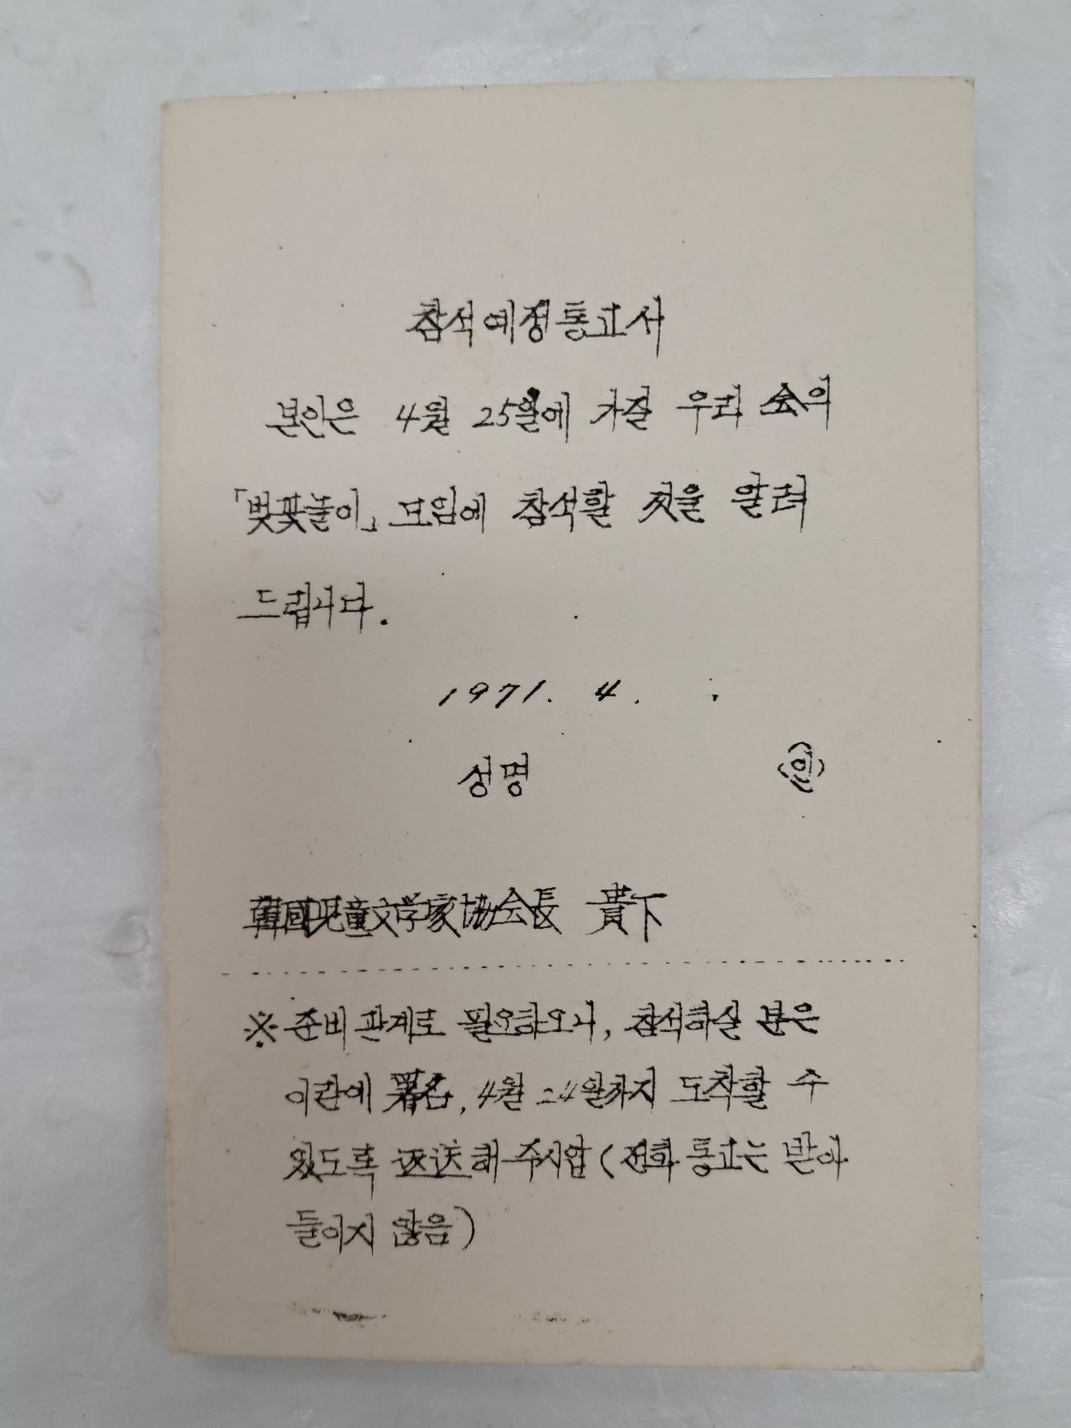 참석예정통고서
본인은 4월 25일에 가질 우리 会의
「벚꽃놀이」 모임에 참석할 것을 알려
드립니다.
1971. 4. .
성명 ㊞
韓國児童文学家協会長 貴下
※ 준비관계로 필요하오니, 참석하실 분은
이란에 署名, 4월 24일까지 도착할 수
있도록 返送해 주시압 (전화 통고는 받아
들이지 않음)